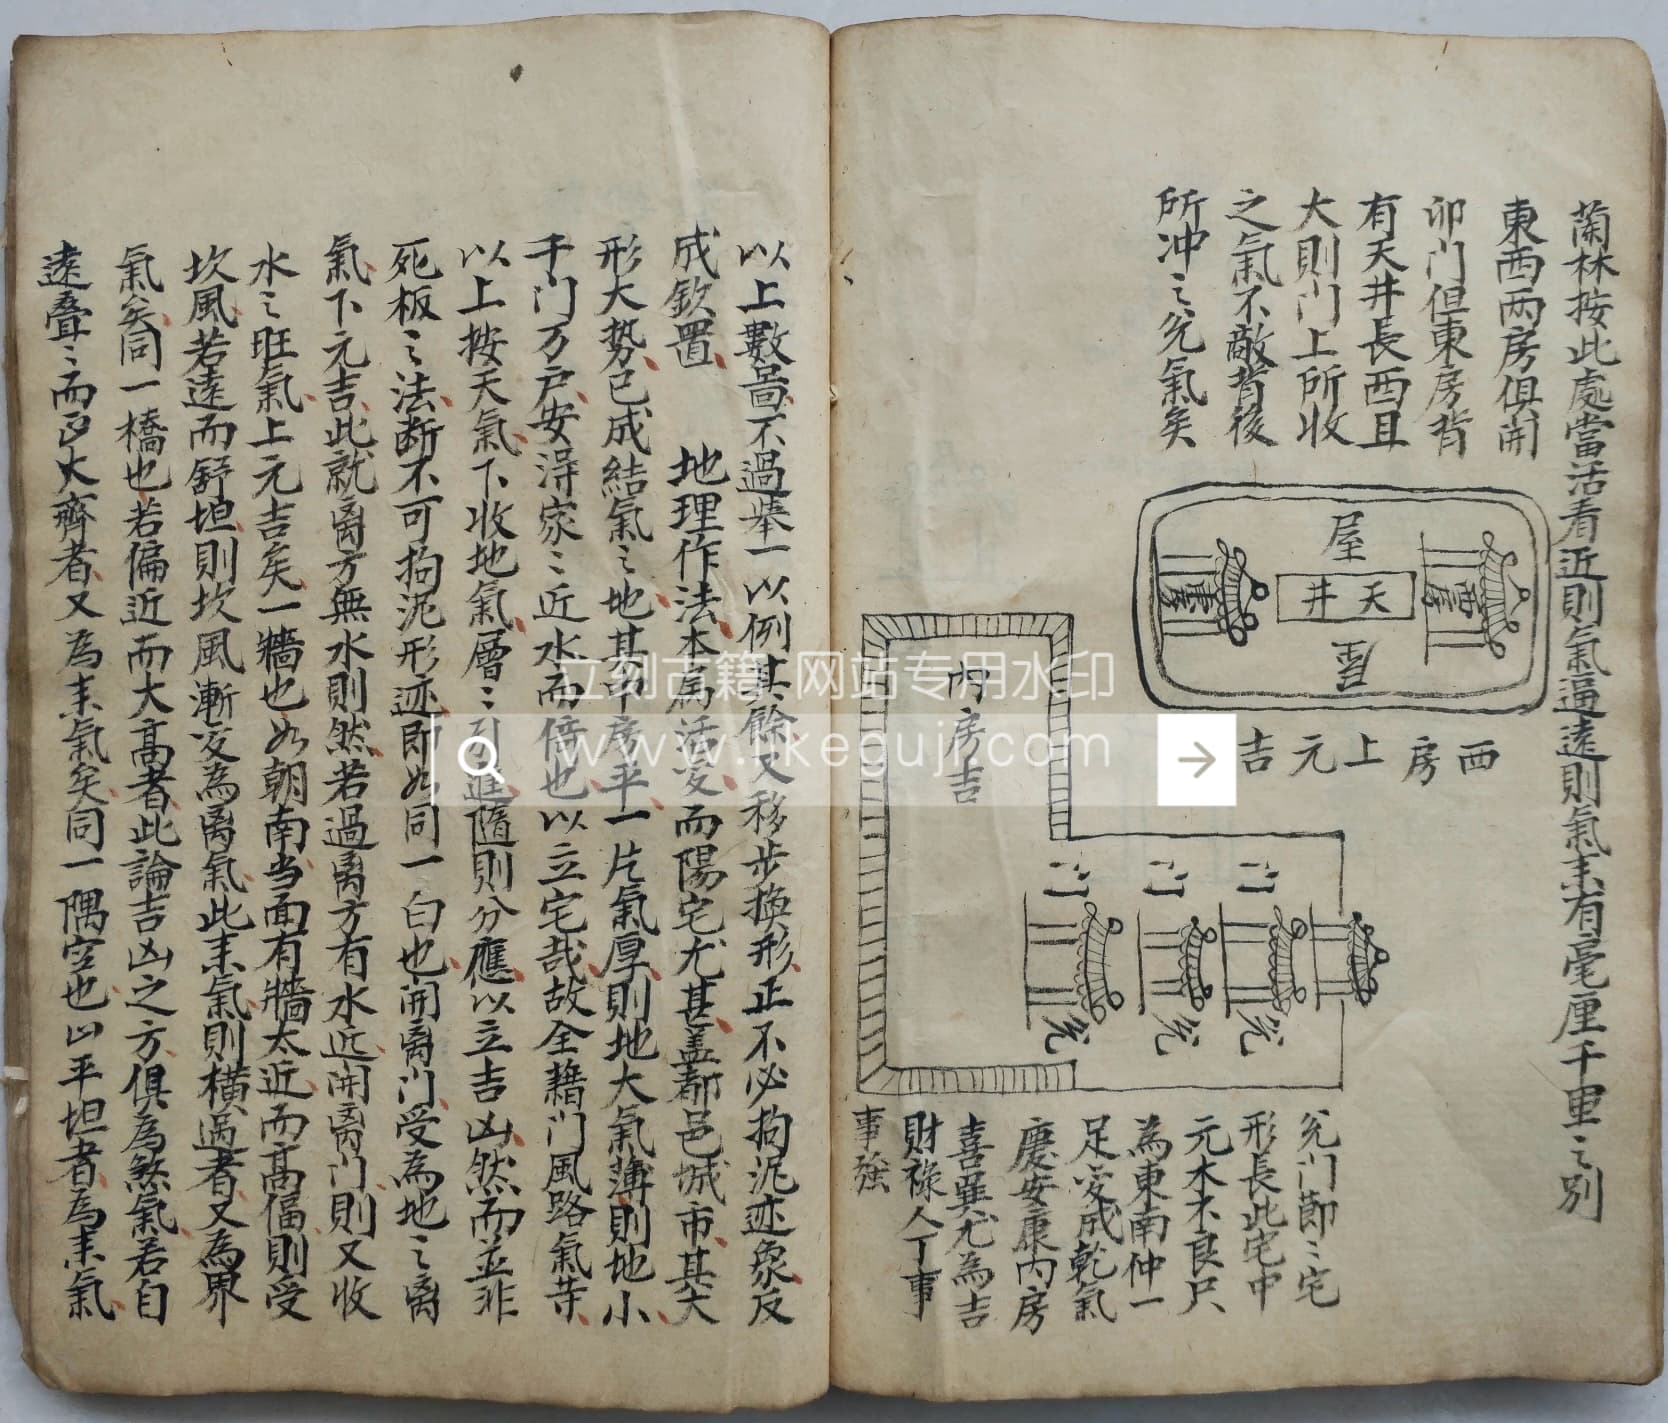 蘭林按此處當活看近則氣逼遠則氣耒有毫厘千里之別
東西两房俱開
卯门但東房背
有天井長西且
大則门上所收
之氣不敵背後
所冲之兊氣矣
屋
西房
天井
東房
西房上元吉
内房吉
门
门
门
兊
兊
兊
兊门節〻宅
形長此宅中
元木不良只
為東南仲一
足变成乾氣
慶安康内房
喜巽尤為吉
財祿人丁事
事強
以上數啚不過舉一以例其餘又移步換形正不必拘泥迹象反
成欽置　地理作法本属活变而陽宅尤甚盖都邑城市其大
形大势已成結氣之地其中房平一片氣厚則地大氣薄則地小
千门万户安淂家〻近水而倍也以立宅哉故全藉门風路氣等
以上按天氣下收地氣層〻引進隨則分應以立吉凶然而並非
死板之法断不可拘泥形迹即如同一白也開离门受為地之离
氣下元吉此就离方無水則然若過离方有水近開离门則又收
水之旺氣上元吉矣一牆也如朝南当面有牆太近而高偪則受
坎風若遠而舒坦則坎風漸变為离氣此耒氣則横過者又為界
氣矣同一橋也若偏近而大高者此論吉凶之方俱為煞氣若自
遠叠〻而大齊者又為耒氣矣同一隅空也凹平坦者為耒氣
立刻古籍 网站专用水印
www.likeguji.com